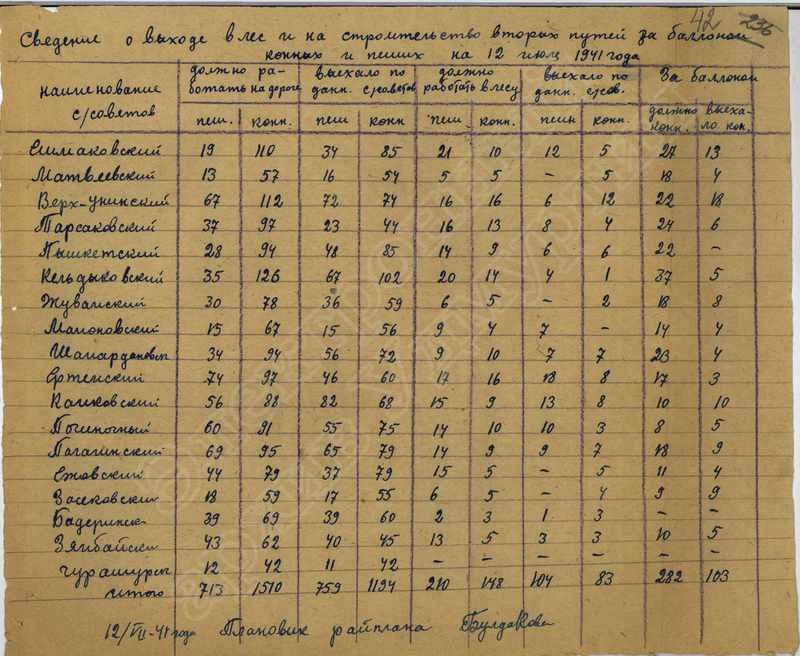 42 236
Сведение о выходе в лес и на строительство вторых путей за баллоном
конных и пеших на 12 июля 1941 года
наименование с/советов | должно работать на дороге | выехало по данн. с/советов | должно работать в лесу | выехало по данн. с/сов. | За баллоном
пеш. | конн. | пеш | конн | пеш. | конн. | пеш | конн. | должно конн. | выехало кон.
Ешмаковский 19 110 34 85 21 10 12 5 27 13
Матвеевский 13 57 16 54 5 5 – 5 18 4
Верх-унинский 67 112 72 74 16 16 6 12 22 18
Тарсаковский 37 97 23 44 16 13 8 4 24 6
Пышкетский 28 94 48 85 14 9 6 6 22 –
Кельдыковский 35 126 67 102 20 14 4 1 37 5
Жувамский 30 78 36 59 6 5 – 2 18 8
15 67 15 56 9 4 7 – 14 4
Шамардановск 34 94 56 72 9 10 7 7 23 4
Ертемский 74 97 46 60 17 16 18 8 17 3
Камковский 56 88 82 68 15 9 13 8 10 10
Починочный 60 91 55 75 14 10 10 3 8 5
69 95 65 79 14 9 9 7 18 9
Ежовский 44 79 37 79 15 5 – 5 11 4
Зосековский 18 59 17 55 6 5 – 4 9 9
39 69 39 60 2 3 1 3 – –
43 62 40 45 13 5 3 3 10 5
12 42 11 42 – – – – – –
итого 713 1510 759 1194 210 148 104 83 282 103
12/VII-41 года Плановик райплана Булдакова